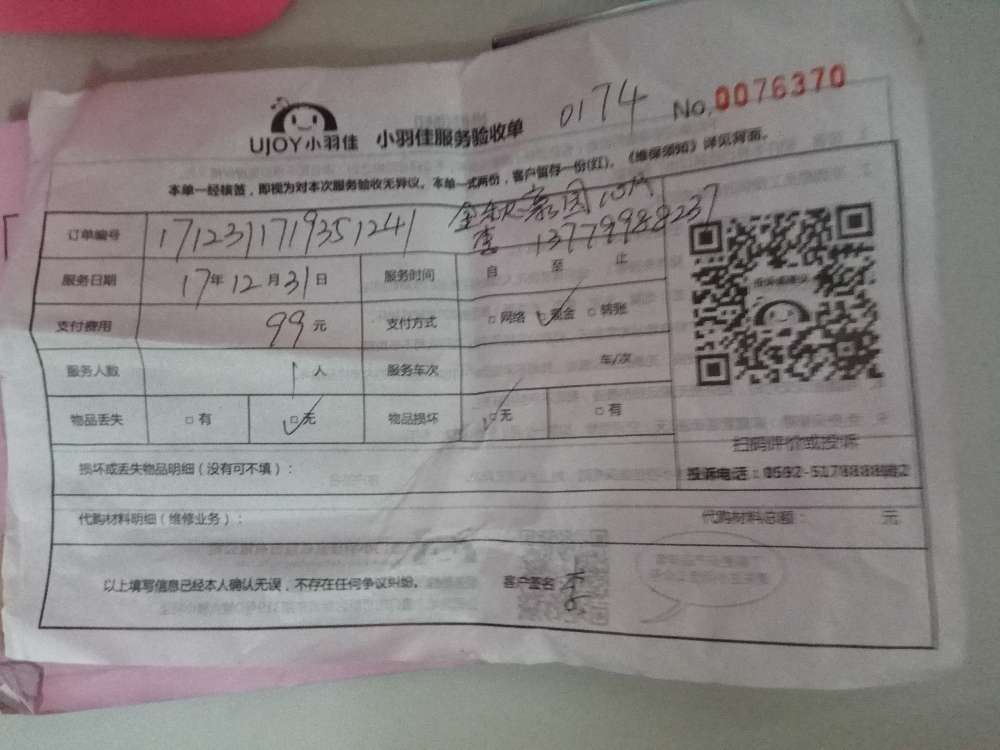 UJOY小羽佳 小羽佳服务验收单 0174 No.0076370
本单一经核签，即视为对本次服务验收无异议。本单一式两份，客户留存一份(红)。《维保须知》详见背面。
订单编号 1712311719351241
李 13779988237
服务日期 17年12月31日 服务时间 自 至 止
支付费用 99元 支付方式 □网络 □现金 □转账
服务人数 1人 服务车次 车/次
物品丢失 □有 □无 物品损坏 □无 □有
扫码评价或投诉
损坏或丢失物品明细（没有可不填）：
投诉电话：0592-5178
代购材料明细（维修业务）： 代购材料总额： 元
以上填写信息已经本人确认无误，不存在任何争议纠纷。 客户签名 李